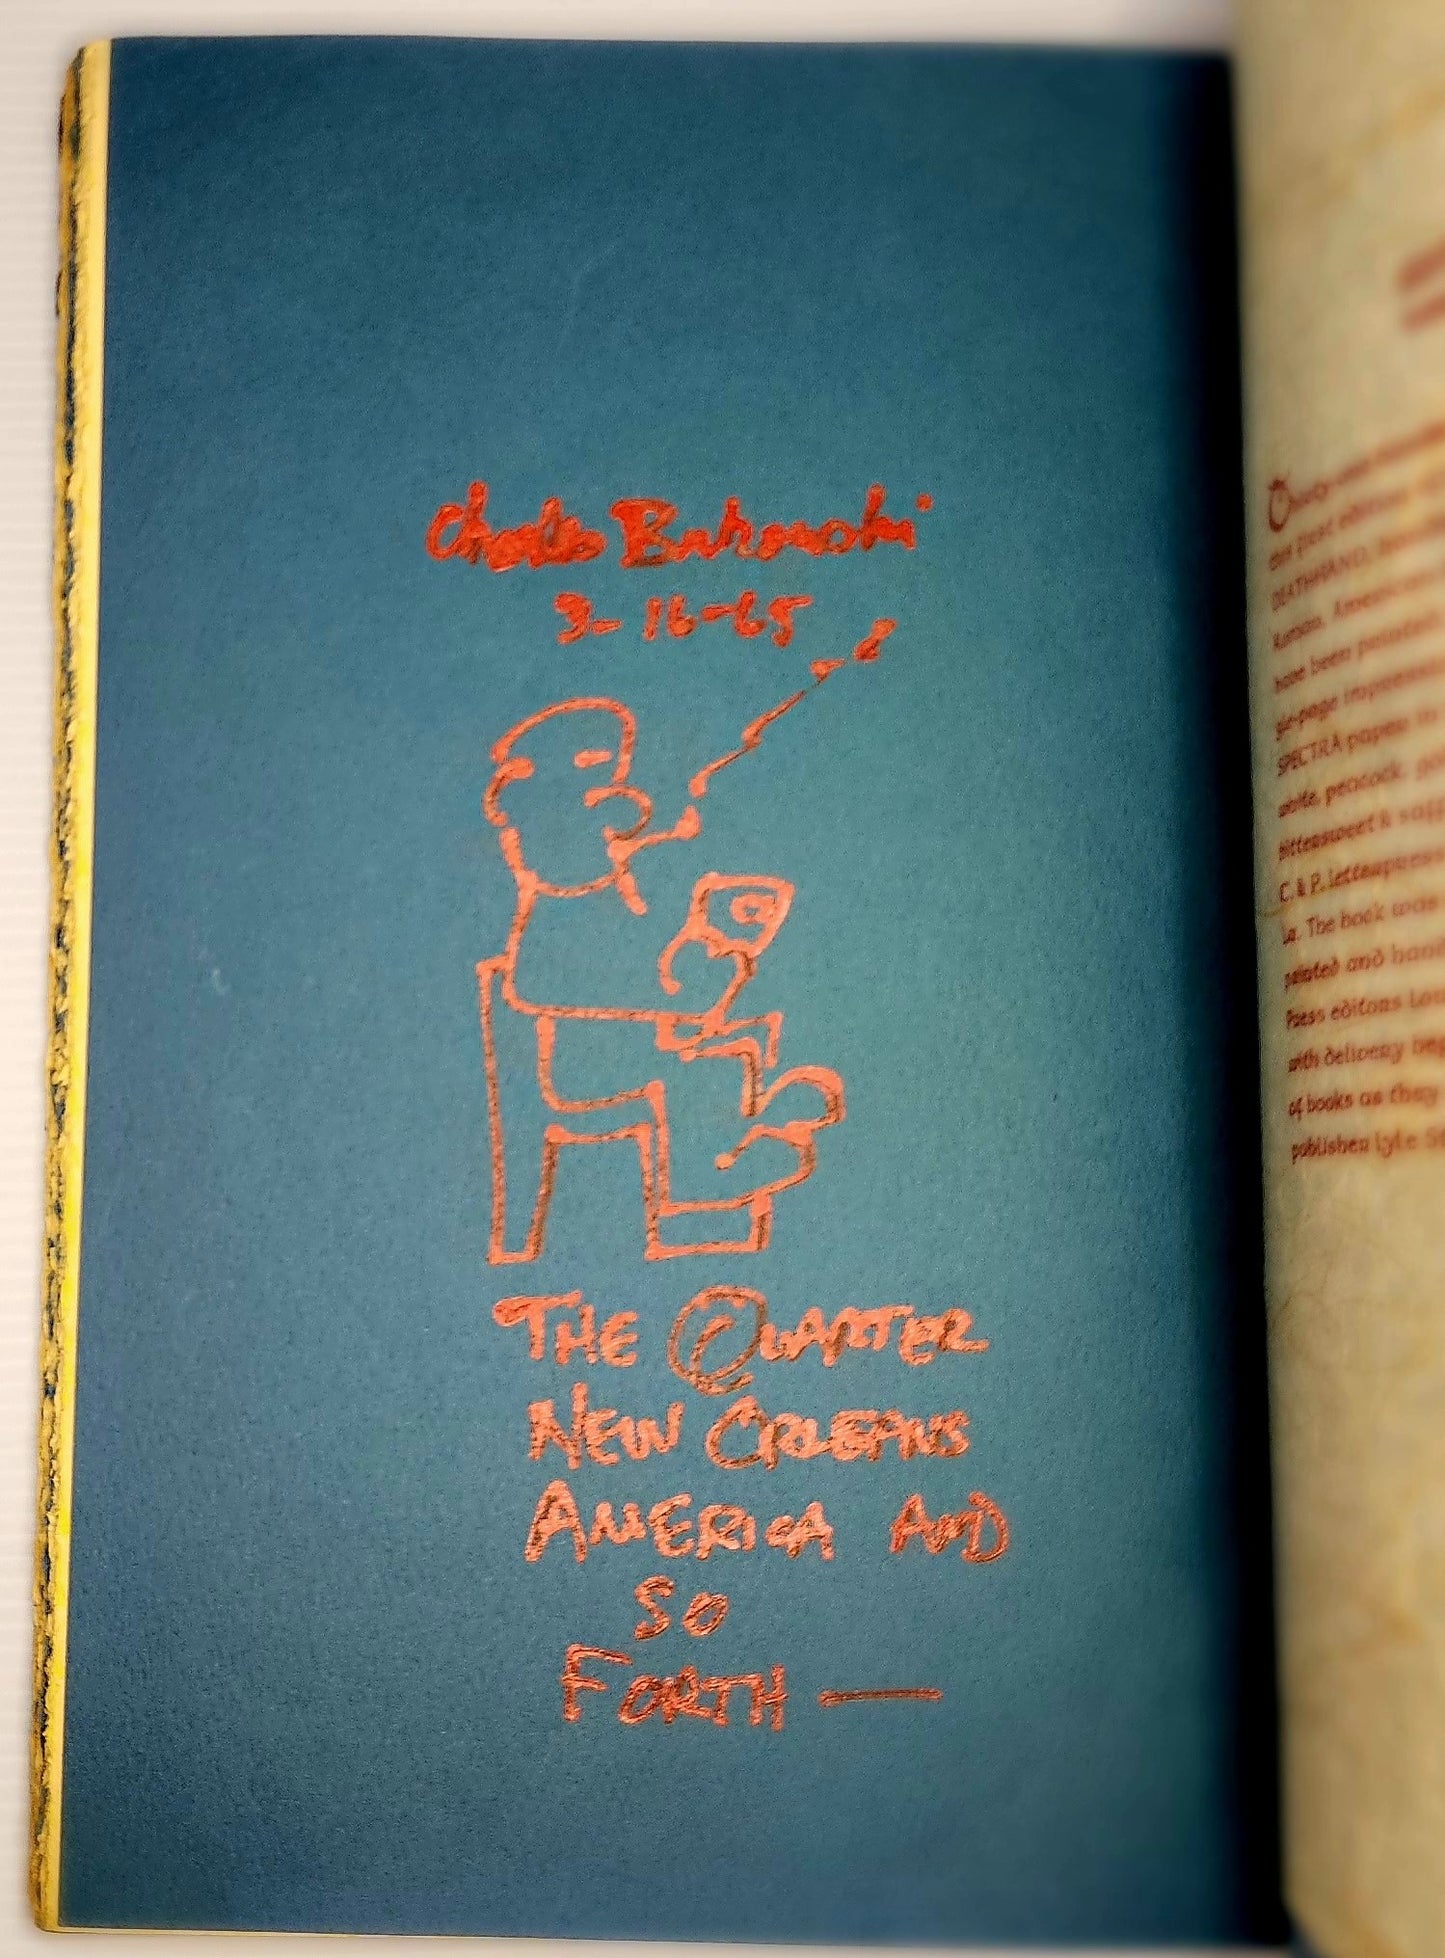 Charles Bukowski
3-16-65
THE QUARTER
NEW ORLEANS
AMERICA AND
SO
FORTH —
DEATHHAND,
have been printed
six-page impressions
SPECTRA paper in
white, peacock, go
bittersweet & saff
C. & P. letterpress
La. The book was
printed and hand
Press editons Lou
with delivery beg
of books as they
publisher Lyle St